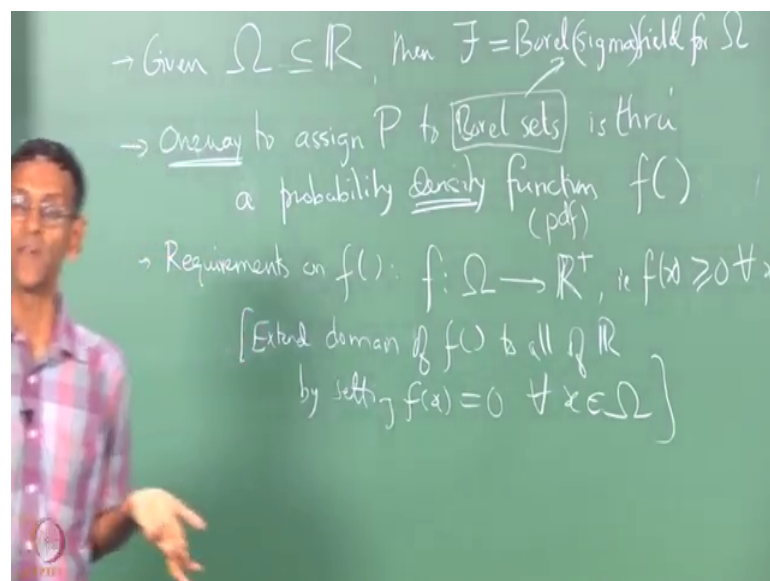 → Given Ω ⊆ ℝ, then Ƒ = Borel (sigma) field for Ω
→ One way to assign P to Borel sets is thru
a probability density function f()
(pdf)
→ Requirements on f(): f: Ω → ℝ⁺, ie f(x) ≥ 0 ∀ x
[Extend domain of f() to all of ℝ
by setting f(x) = 0 ∀ x ∈ Ω]
NPTEL